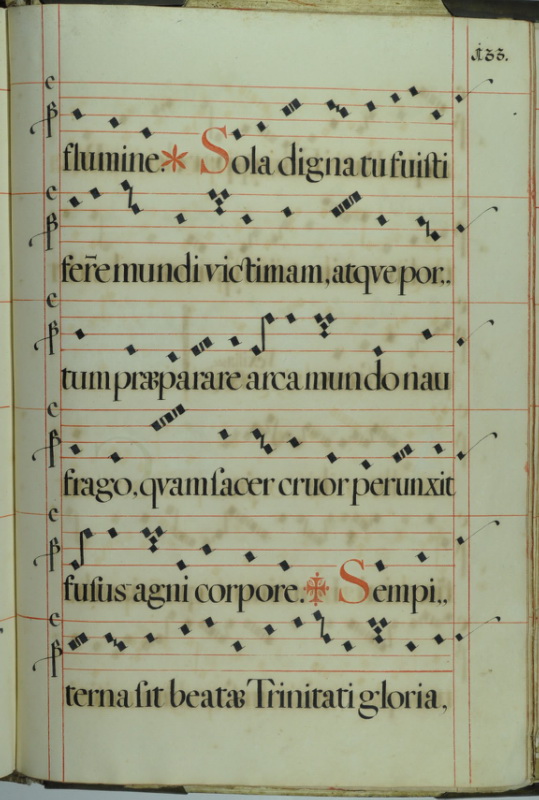 flumine.* Sola digna tu fuisti
fer̄e mundi victimam, atqve por,,
tum præparare arca mundo nau
frago, qvam sacer cruor perunxit
fusus agni corpore. Sempi,,
terna sit beatæ Trinitati gloria,